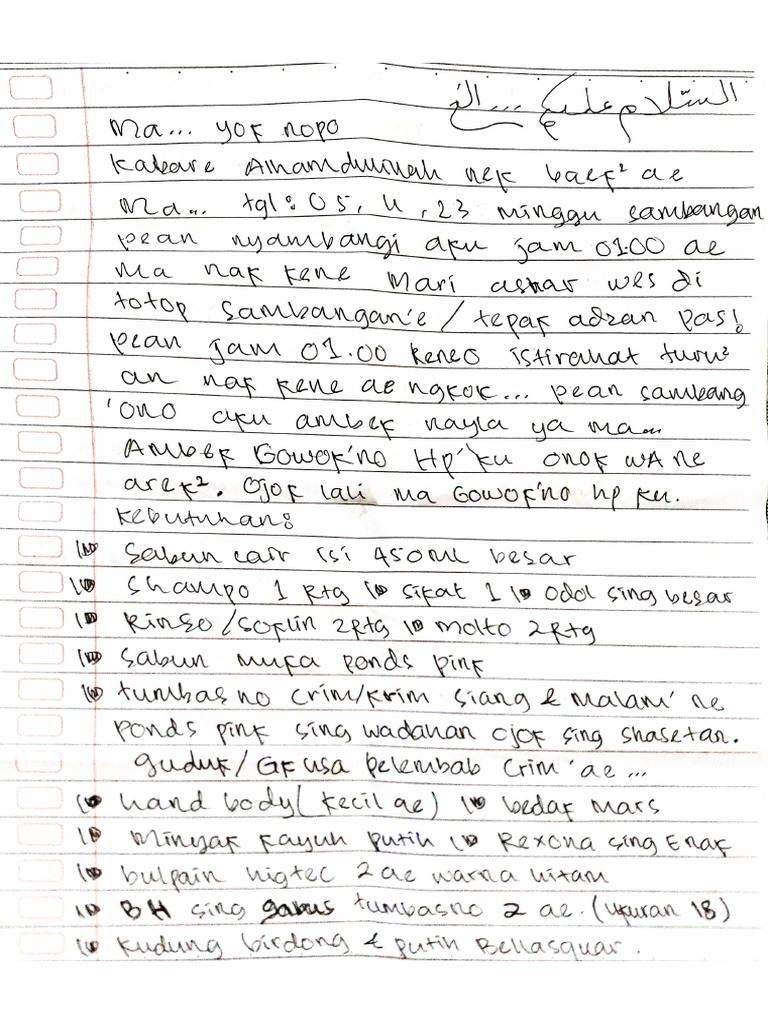 السلام عليكم ... الخ
Ma... yok nopo
Kabare Alhamdulillah nek baek² ae
Ma... tgl: 05, 4, 23 minggu sambangan
pean nyambangi aku jam 01.00 ae
ma nak kene mari ashar wes di
totop sambangan'e / tepak adzan pas!
pean jam 01.00 keneo istirahat turu²
an nak kene ae ngkok... pean sambang
'ono aku ambek nayla ya ma...
Ambek Gowok'no Hp'ku onok WA ne
arek². Ojok lali ma Gowok'no hp ku.
Kebutuhan:
sabun cair isi 450ML besar
shampo 1 Rtg sikat 1 odol sing besar
Rinso/Soflin 2Rtg molto 2Rtg
sabun muka ponds pink
tumbas no crim/krim siang & malam' ne
ponds pink sing wadahan ojok sing shasetan.
guduk/Gk usa pelembab Crim'ae...
hand body (kecil ae) bedak mars
Minyak kayuh putih Rexona sing Enak
bulpain higtec 2 ae warna hitam
BH sing gabus tumbasno 2 ae. (ukuran 18)
kudung birdong & putih Bellasquar.